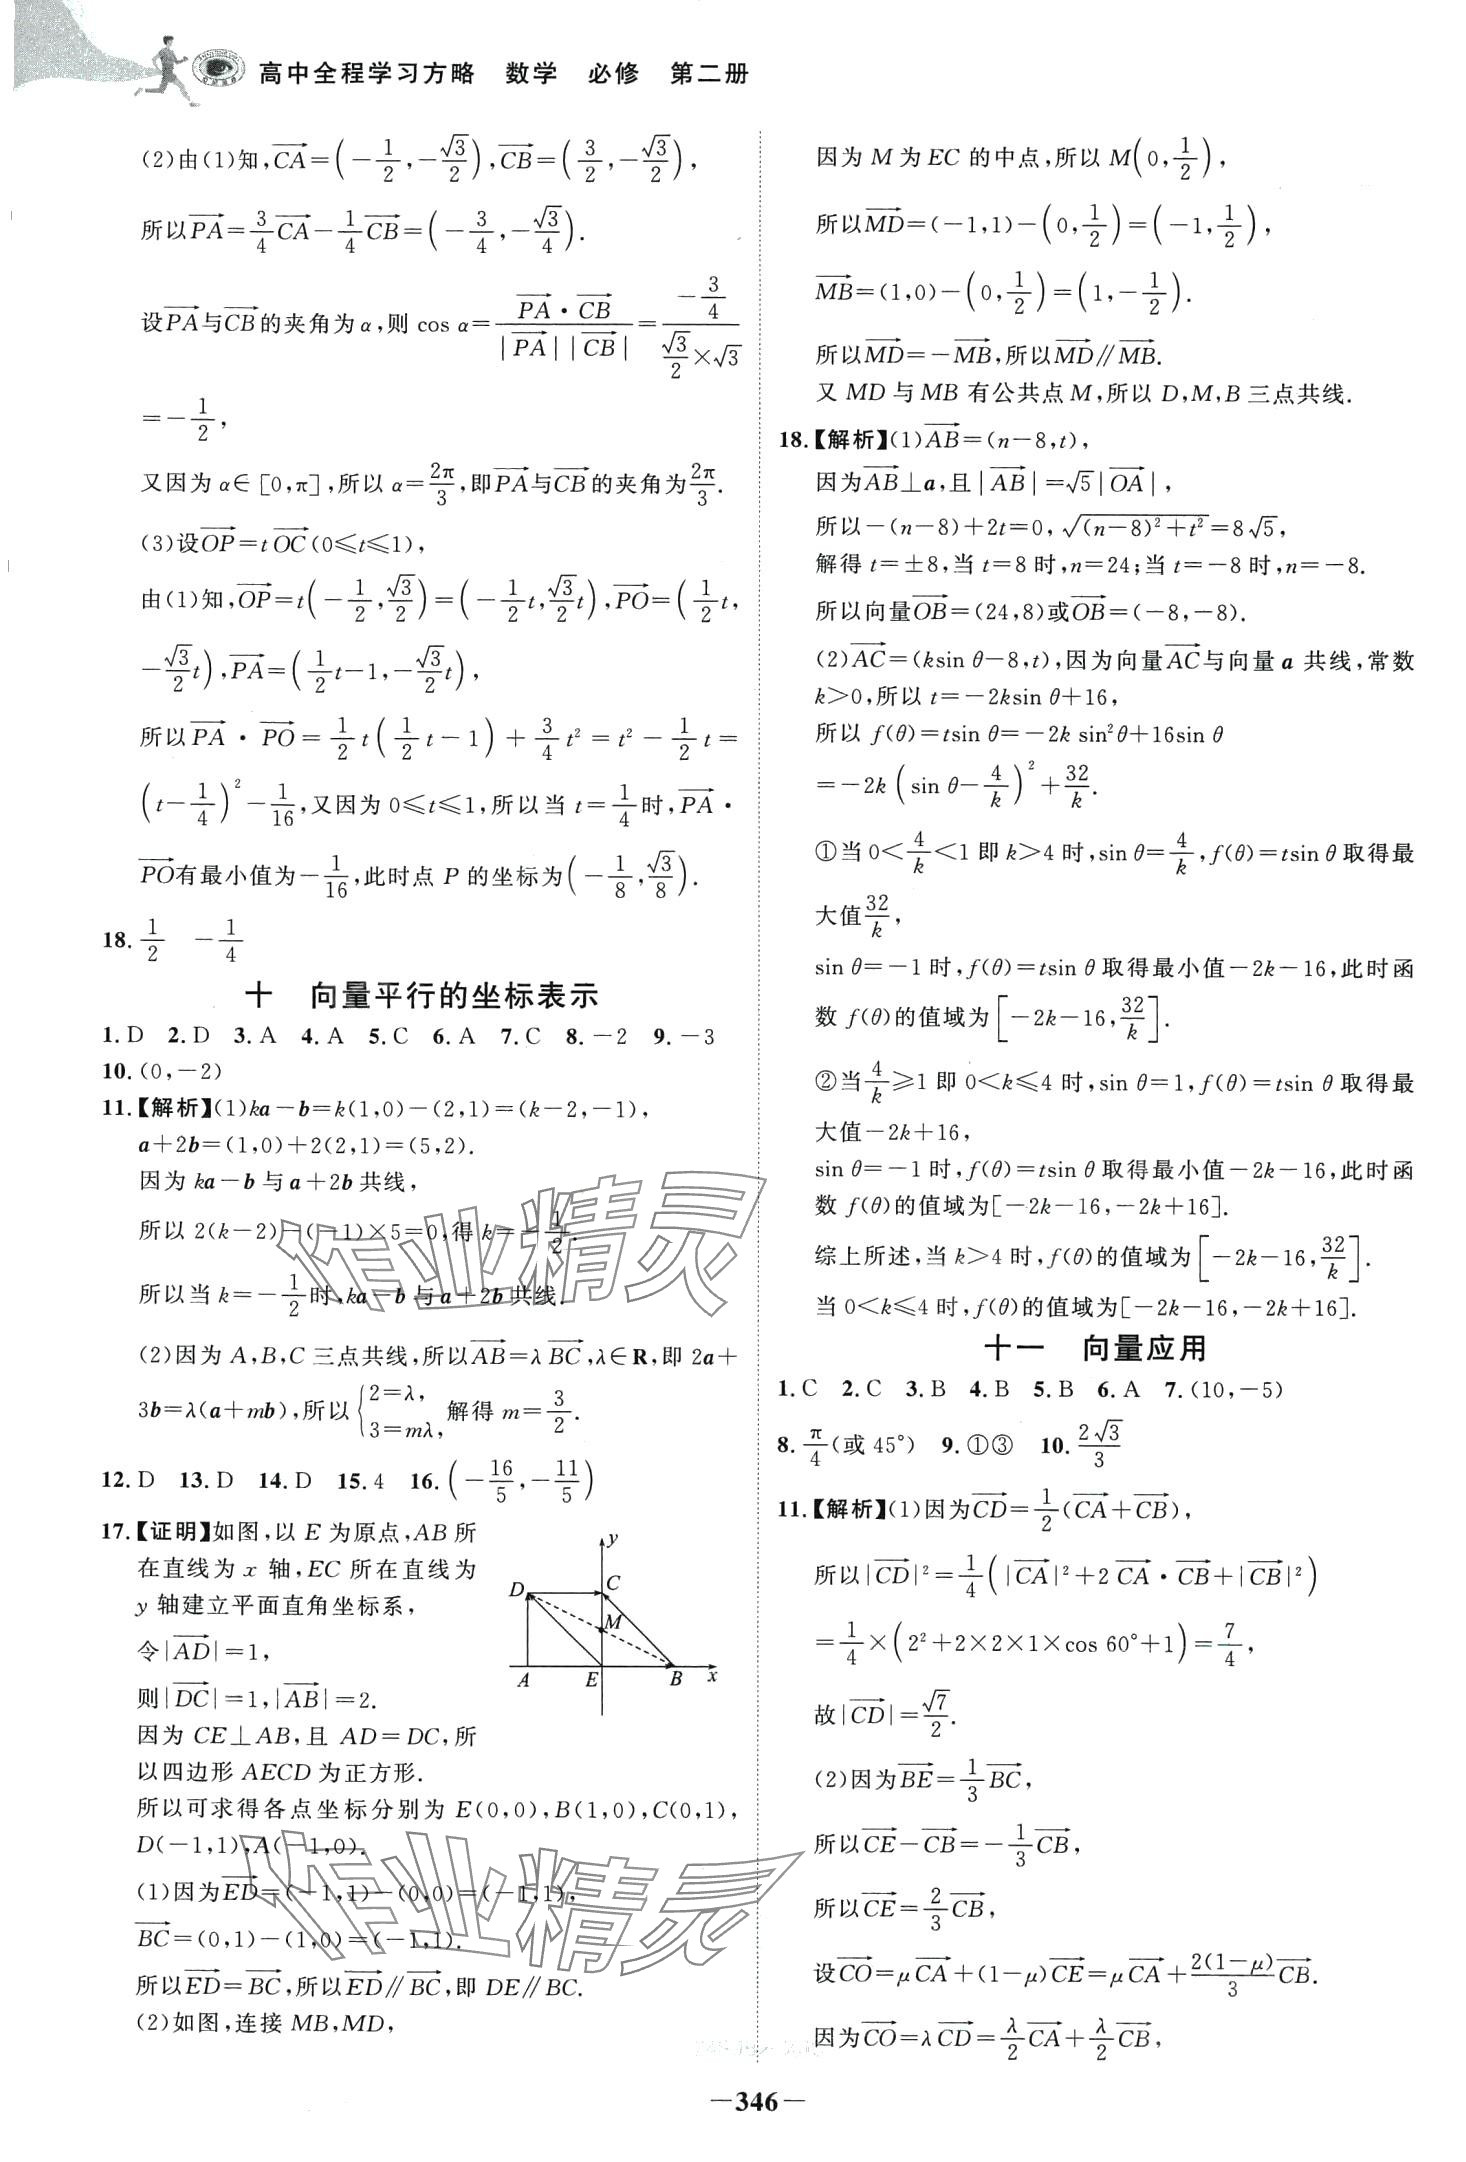 高中全程学习方略 数学 必修 第二册
(2)由(1)知,CA→=(-1/2,-√3/2),CB→=(3/2,-√3/2),
所以PA→=3/4 CA→-1/4 CB→=(-3/4,-√3/4).
设PA→与CB→的夹角为α,则 cos α=(PA→·CB→)/(|PA→||CB→|)=(-3/4)/(√3/2×√3)
=-1/2,
又因为 α∈[0,π],所以 α=2π/3,即PA→与CB→的夹角为2π/3.
(3)设OP→=tOC→(0≤t≤1),
由(1)知,OP→=t(-1/2,√3/2)=(-1/2t,√3/2t),PO→=(1/2t,
-√3/2t),PA→=(1/2t-1,-√3/2t),
所以PA→·PO→=1/2t(1/2t-1)+3/4t²=t²-1/2t=
(t-1/4)²-1/16,又因为 0≤t≤1,所以当 t=1/4时,PA→·
PO→有最小值为-1/16,此时点 P 的坐标为(-1/8,√3/8).
18.1/2 -1/4
十 向量平行的坐标表示
1.D 2.D 3.A 4.A 5.C 6.A 7.C 8.-2 9.-3
10.(0,-2)
11.【解析】(1)ka-b=k(1,0)-(2,1)=(k-2,-1),
a+2b=(1,0)+2(2,1)=(5,2).
因为 ka-b 与 a+2b 共线,
所以 2(k-2)-(-1)×5=0,得 k=-1/2.
所以当 k=-1/2时,ka-b 与 a+2b 共线.
(2)因为 A,B,C 三点共线,所以AB→=λBC→,λ∈R,即 2a+
3b=λ(a+mb),所以{2=λ,3=mλ,解得 m=3/2.
12.D 13.D 14.D 15.4 16.(-16/5,-11/5)
17.【证明】如图,以 E 为原点,AB 所
在直线为 x 轴,EC 所在直线为
y 轴建立平面直角坐标系,
令|AD→|=1,
则|DC→|=1,|AB→|=2.
因为 CE⊥AB,且 AD=DC,所
以四边形 AECD 为正方形.
y
D C
M
A E B x
所以可求得各点坐标分别为 E(0,0),B(1,0),C(0,1),
D(-1,1),A(-1,0).
(1)因为ED→=(-1,1)-(0,0)=(-1,1),
BC→=(0,1)-(1,0)=(-1,1).
所以ED→=BC→,所以ED→∥BC→,即 DE∥BC.
(2)如图,连接 MB,MD,
因为 M 为 EC 的中点,所以 M(0,1/2),
所以MD→=(-1,1)-(0,1/2)=(-1,1/2),
MB→=(1,0)-(0,1/2)=(1,-1/2).
所以MD→=-MB→,所以MD→∥MB→.
又 MD 与 MB 有公共点 M,所以 D,M,B 三点共线.
18.【解析】(1)AB→=(n-8,t),
因为AB→⊥a,且|AB→|=√5|OA→|,
所以-(n-8)+2t=0,√((n-8)²+t²)=8√5,
解得 t=±8,当 t=8 时,n=24;当 t=-8 时,n=-8.
所以向量OB→=(24,8)或OB→=(-8,-8).
(2)AC→=(ksin θ-8,t),因为向量AC→与向量 a 共线,常数
k>0,所以 t=-2ksin θ+16,
所以 f(θ)=tsin θ=-2k sin²θ+16sin θ
=-2k(sin θ-4/k)²+32/k.
①当 0<4/k<1 即 k>4 时,sin θ=4/k,f(θ)=tsin θ取得最
大值32/k,
sin θ=-1 时,f(θ)=tsin θ取得最小值-2k-16,此时函
数 f(θ)的值域为[-2k-16,32/k].
②当4/k≥1 即 0<k≤4 时,sin θ=1,f(θ)=tsin θ取得最
大值-2k+16,
sin θ=-1 时,f(θ)=tsin θ取得最小值-2k-16,此时函
数 f(θ)的值域为[-2k-16,-2k+16].
综上所述,当 k>4 时,f(θ)的值域为[-2k-16,32/k].
当 0<k≤4 时,f(θ)的值域为[-2k-16,-2k+16].
十一 向量应用
1.C 2.C 3.B 4.B 5.B 6.A 7.(10,-5)
8.π/4(或 45°) 9.①③ 10.2√3/3
11.【解析】(1)因为CD→=1/2(CA→+CB→),
所以|CD→|²=1/4(|CA→|²+2CA→·CB→+|CB→|²)
=1/4×(2²+2×2×1×cos 60°+1)=7/4,
故|CD→|=√7/2.
(2)因为BE→=1/3BC→,
所以CE→-CB→=-1/3CB→,
所以CE→=2/3CB→,
设CO→=μCA→+(1-μ)CE→=μCA→+2(1-μ)/3CB→.
因为CO→=λCD→=λ/2CA→+λ/2CB→,
作业精灵
作业精灵
—346—